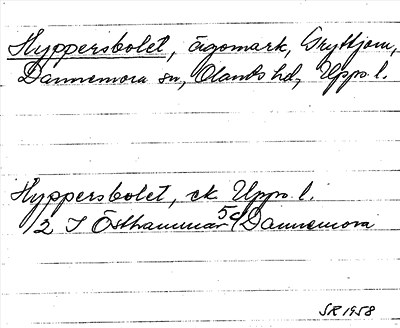 Hyppersbolet, ägomark, Gryttjom,
Dannemora sn, Olands hd, Upps. l.
Hyppersbolet, ek. Upps. l.
12 I Östhammar 5d Dannemora
SR 1958